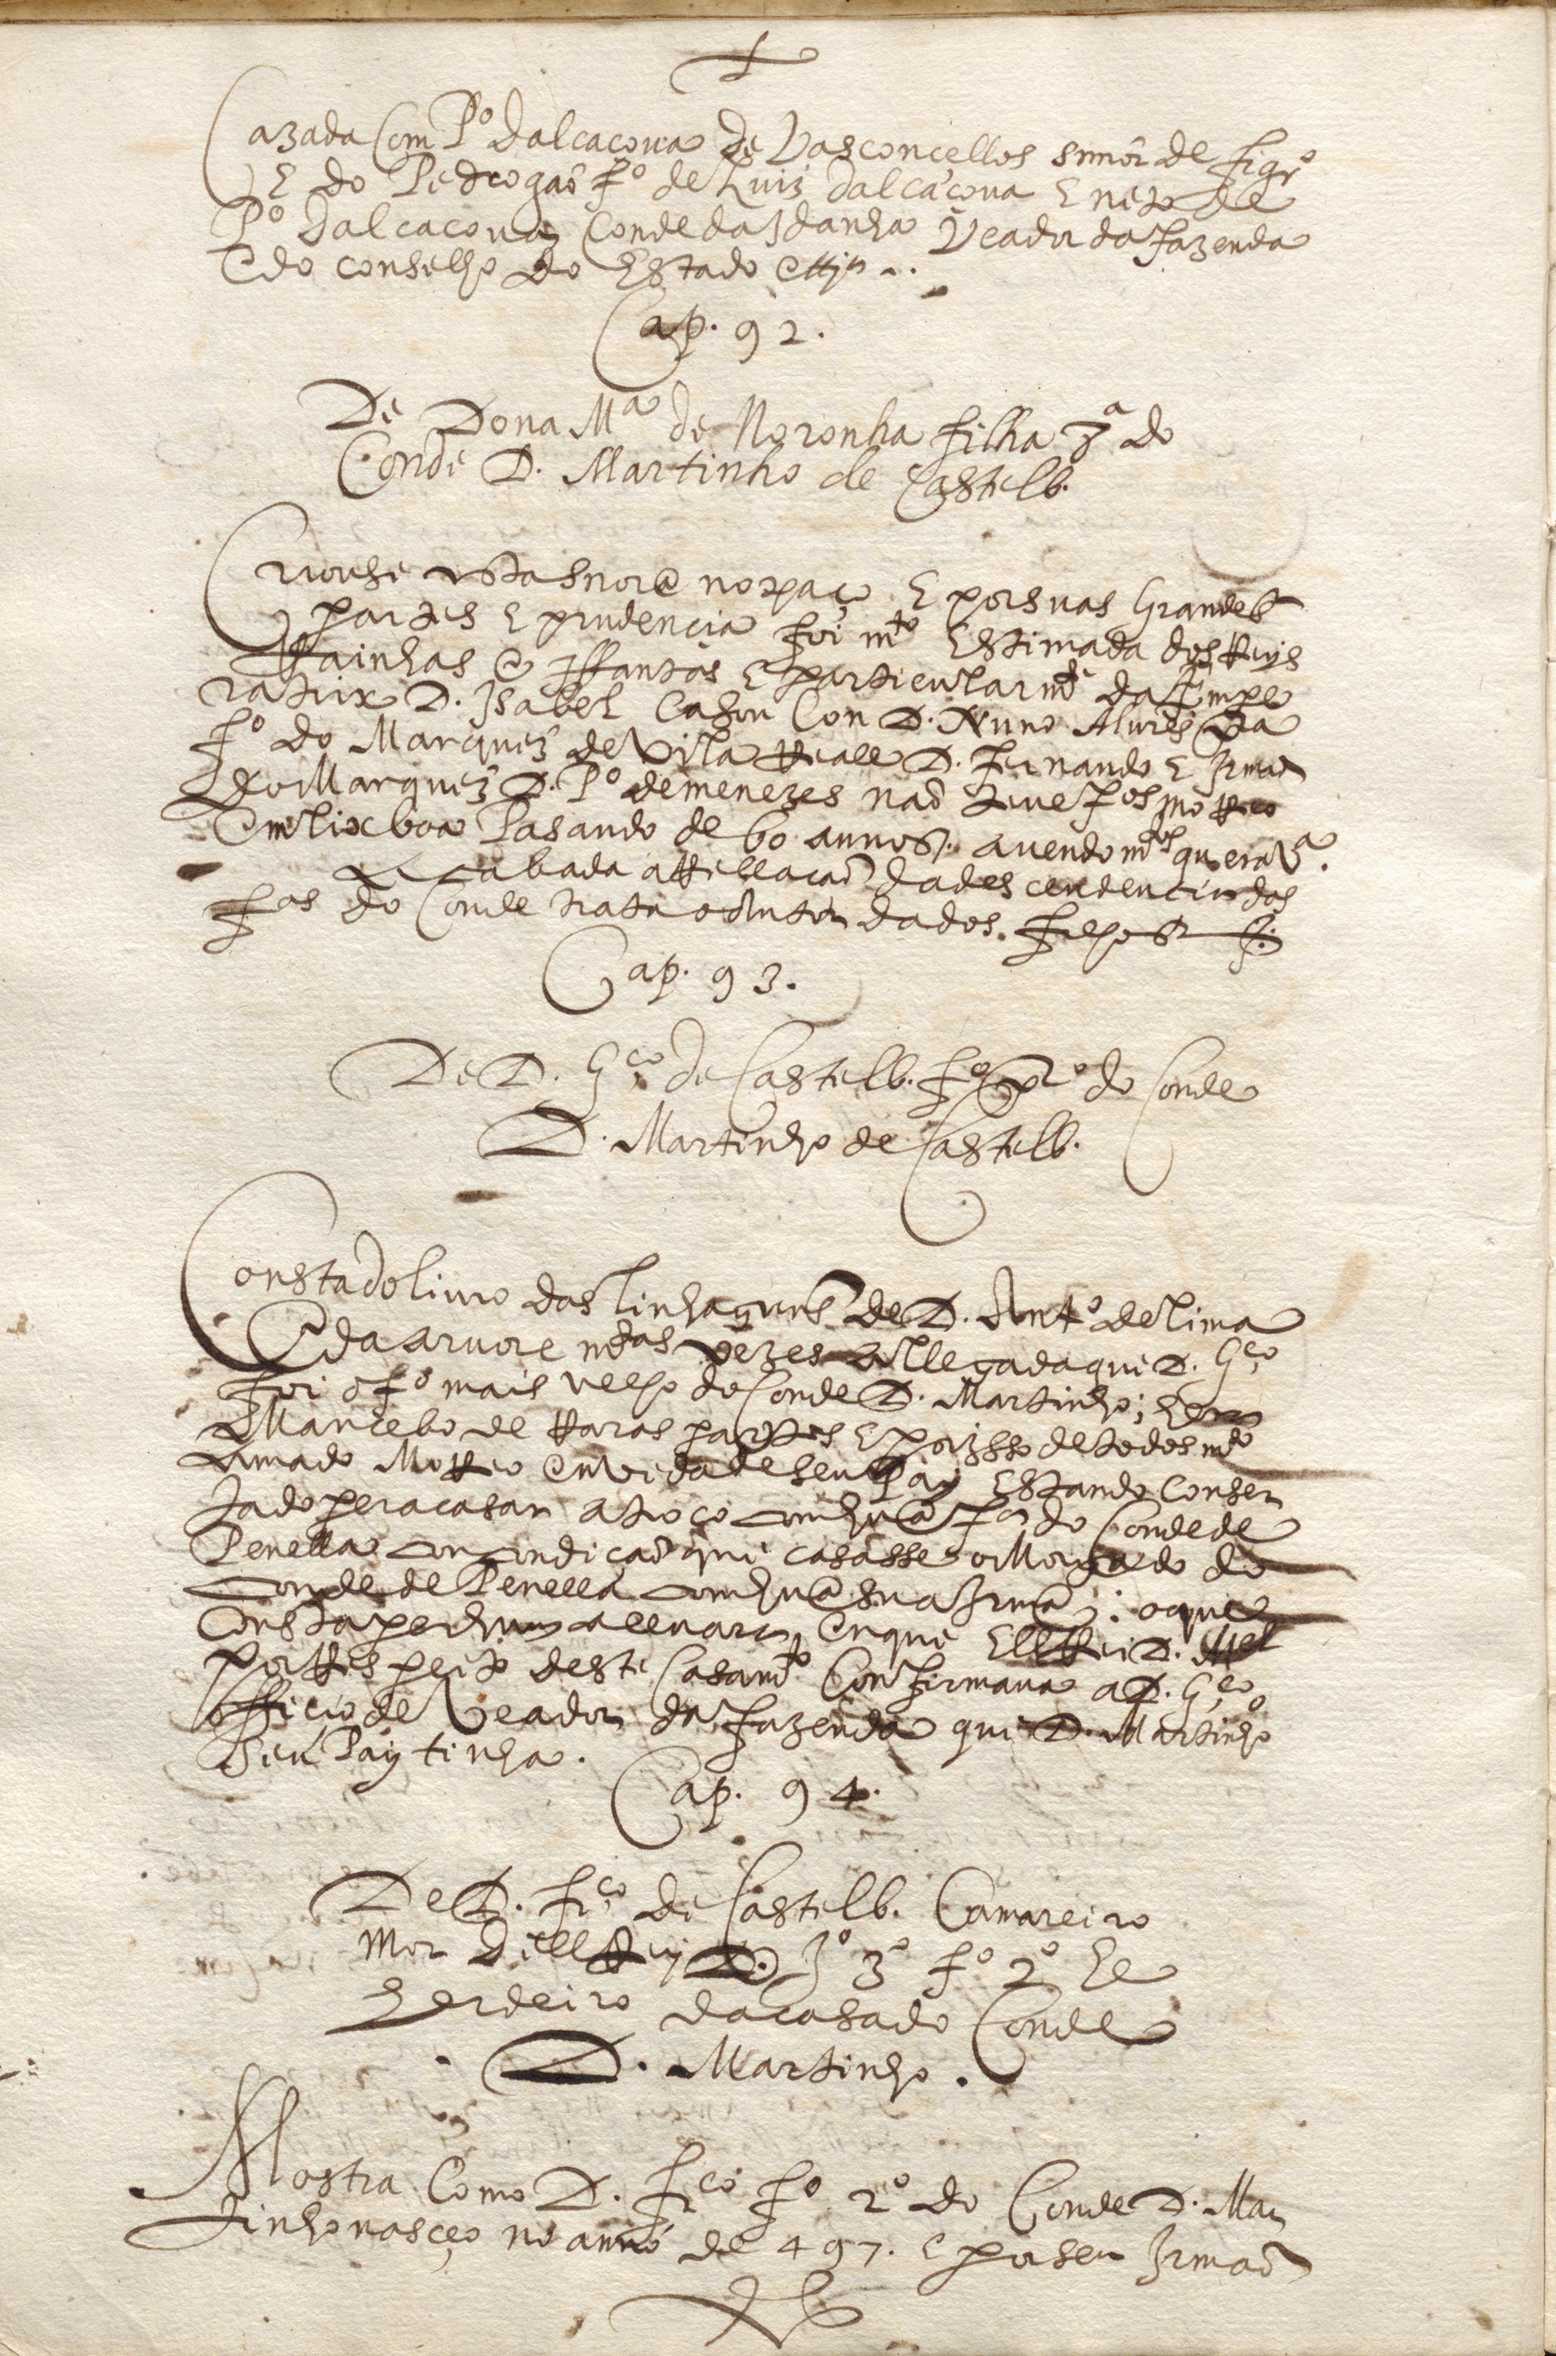 Cazada Com Pº Dalcaçoua de Vasconcellos snnor de figrº
E do Pedrogaõ fº de Luis Dalcaçoua E neto de
Pº Dalcacoua Conde da Idanha Veador da fazenda
E do conselho do Estado
Cap. 92.
De Dona Mª de Noronha filha 3ª do
Conde D. Martinho de Castelb.
Criouse esta snora no paço E por suas Grandes
partes E prudencia foi mto Estimada dos Reys
Rainhas e Iffantas E particularmte da Empe
ratrix D. Isabel Casou Con D. Nuno Alures pra
fº do Marques de Vila Reall D. Fernando E Irmaõ
do Marques D. Pº de menezes naõ teue fos morreo
Em lixboa Pasando de 60 annos. auendo mtos que era Vª.
Acabada a Rellacaõ da descendencia das
fas do Conde trata o Autor dados. filhos
Cap. 93.
De D. Gço de Castelb. fº prº do Conde
D. Martinho de Castelb.
Consta do liuro das linhagens de D. Antº de lima
E da aruore mtas vezes allegada que D. Gço
foi o fº mais velho do Conde D. Martinho; hera
Mancebo de Raras partes E por isso de todos mto
Amado Morreo Em vida de seu Pay Estando Conser
tado pera casar a troço com huã fª do Conde de
Penella con condicaõ que casasse o Morgado do
conde de Penella com huã sua Irmã; o que
Consta per hum aluara Enque Ell Rei D. Mel
por Respeito deste Casamto Confirmaua a D. Gço o
officio de Veador da fazenda que D. Martinho
Seu Pay tinha.
Cap. 94.
De D. frco de Castelb. Camareiro
Mor dell Rey D. Jº 3º fº 2º he
herdeiro da casa do Conde
D. Martinho.
Mostra Como D. frco fº 2º do Conde D. Mar
tinho nasçeo no anno de 497. E por ser Irmaõ